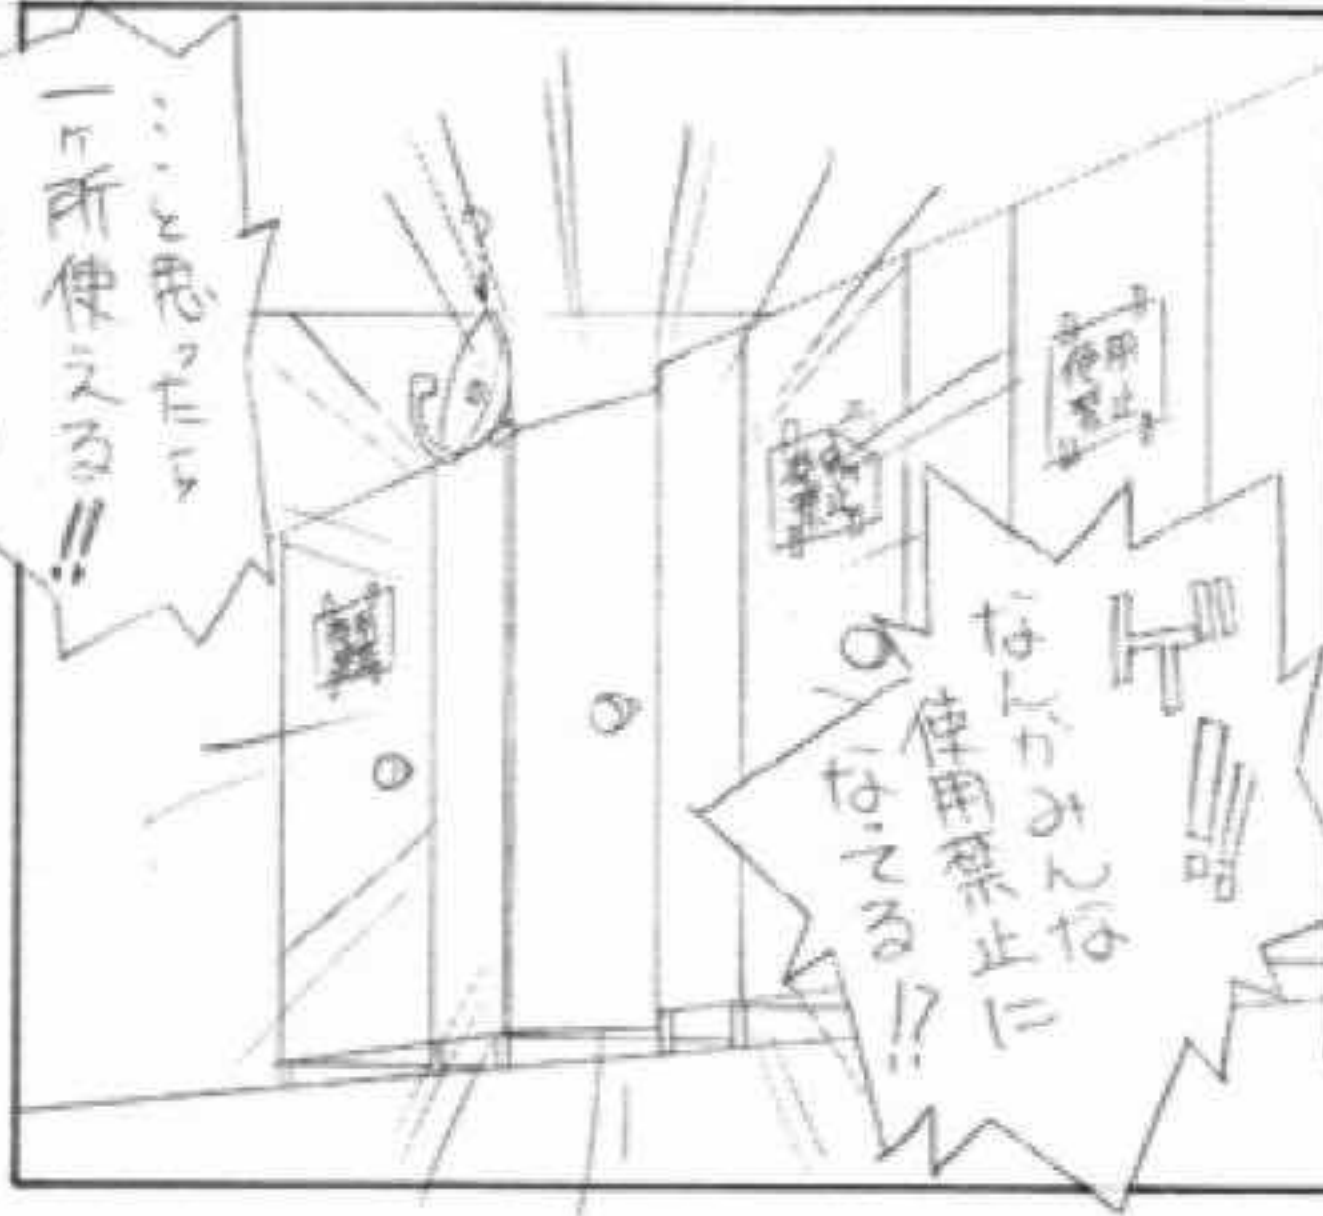 ゲ!!
なんかみんな
使用禁止に
なってる!?
使用
禁止
使用
禁止
…と思ったら
一ヶ所使える!!